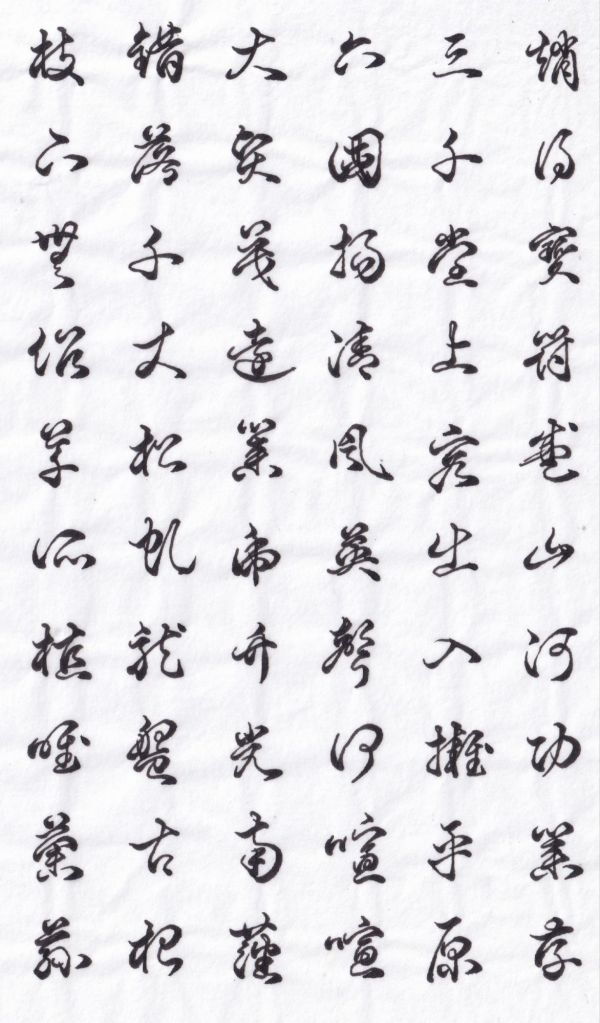 趙得寶符盛山河功業存
三千堂上客出入擁平原
六國揚清風英聲何喧喧
大賢茂遠業虎竹光南藩
錯落千丈松虬龍盤古根
枝下無俗草所植唯蘭蓀